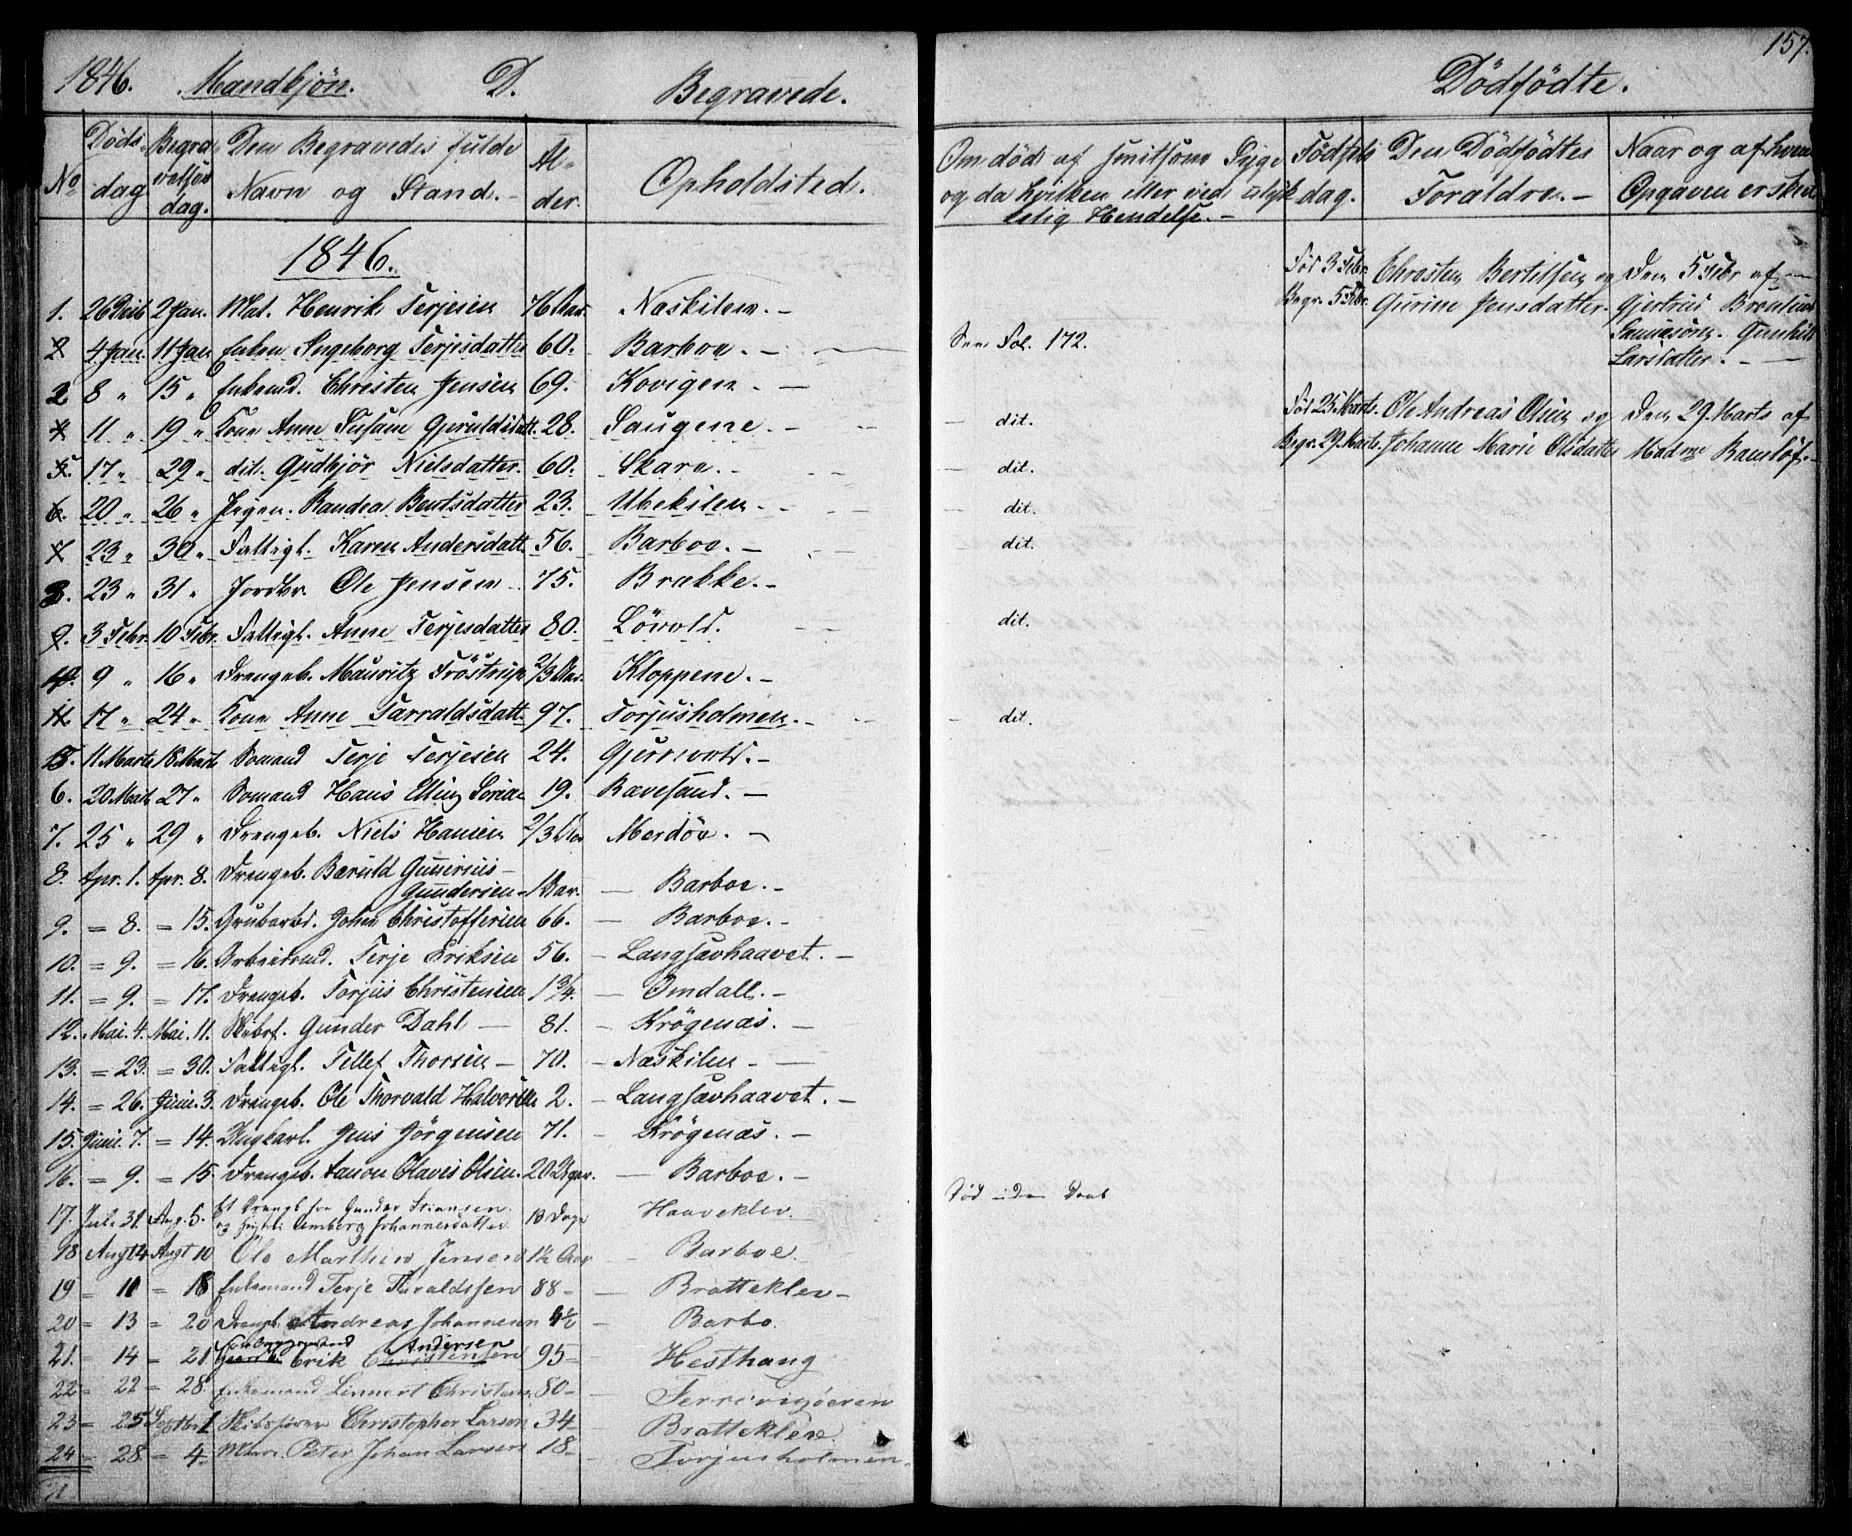 1846. Mandkjön. D. Begravede.
No Döds-dag Begravelses dag. Den Begravedes fulde Navn og Stand. - Al-der. Opholdsted.
1846.
1. 26 Decb 2 Jan. Mat. Henrik Terjesen 76 Aar. Naskilen. -
2 4 Jan. 11 Jan Enken Ingeborg Terjesdatter 60. Barboe. -
2 8 " 15 " Enkemd. Christen Jensen 69. Kovigen. -
4 11 " 19 " Kone Anne Susane Gjeruldsdatt. 28. Saugene. -
5. 17 " 29 " dit. Gudbjör Nielsdatter. 60. Skare. -
6. 20 " 26 " Pigen. Randea Bentsdatter 23. Ubekilen. -
7 23 " 30 " Fattigl. Karen Andersdatt. 56. Barboe. -
3. 23 " 31 " Jordbr. Ole Jensen 75. Brække. -
9. 3 Febr. 10 Febr. Fattigl. Anne Terjesdatter 80. Lövold.
9 " 16 " Drengeb. Mauritz Fröstrup 2/3 Aar. Kloppene. -
11. 17 " 24 " Kone Anne Tarraldsdatt. 97. Torjusholmen. -
5. 11 Marts 18 Marts Sömand Terje Terjesen 24. Gjervold. -
6. 20 Marts 27 " Sömand Hans Elling 19. Ravesand. -
7. 25 " 29 " Drengeb. Niels Hansen 2/3 Merdöe. -
8. Apr. 1. Apr. 8. Drengeb. Bæruld Gunerius
Gundersen - 1 Aar. - Barboe. -
9. = 8. = 15. Grubearbd. John Christoffersen 66. - Barboe. -
10. = 9. = 16. Arbeidsmd. Terje Eriksen 56. - Langsævhaavet. -
11. = 9. = 17. Drengeb. Torjus Christensen 1 3/4. - Omdall. -
12. Mai. 4. Mai. 11. Skibsf. Gunder Dahl - 81. - Krögenæs. -
13. = 23. = 30. Fattigl. Tellef Thorsen - 70. - Næskilen -
14. = 26. Juni. 3. Drengeb. Ole Thorvald Halvorsen 2. - Langsævhaavet. -
15. Juni. 7. = 14. Ungkarl. Jens Jörgensen 71. - Krögenæs. -
16. = 9. = 15. Drengeb. Olaves Olsen. 20 Uger. - Barboe. -
17. Juli 31. Aug. 5. Et Drengb for Gunder Stiansen.
og Hustru Amberg Johannesdatter 13 Dage Haaveklev.
18 Augt 4 Augt 10 Ole Marthin Jensen 1 1/2 Aar - Barboe
19 - 10 = 18 Enkemand Terje Tharaldssen 88 - - Bratteklev -
20 = 13 = 20 Drengb. Andreas Johannesen - Barbo.
21. - 14 - 21. Erik Christensen Andersen 95 - Hesthaug
22 - 22 = 28. Enkemand Lennert Christens. 80 - -
23 - 25 Septbr 1 Skibsfören Christopher Larsen 34 - Bratteklev.
24 - 28. - 4 - Peter Johan Larsen 18 - - Torjusholmen.

157.
Dödfödte.
Om död af smitsom Syge og da hvilken eller ved ulyk-kelig Hendelse. - Födsels dag. Den Dödfödtes Foraldre. - Naar og af hvem Opgaven er skeet
Föd 3 Febr. Christen Bertelsen og Den 5 Febr af -
Begr. 5 Febr. Gurine Jensdatter. Gjertrud
Gunhild
Larsdatter. -
See Fol. 172.
Föd 25 Marts. Ole Andreas Olsen og Den 29 Marts af
Begr. 29 Marts. Johanne Marie Olsdatter Madme Ramslöf. -
- dit.
- dit.
- dit.
- dit.
dit.
- dit.
Död uden Daab